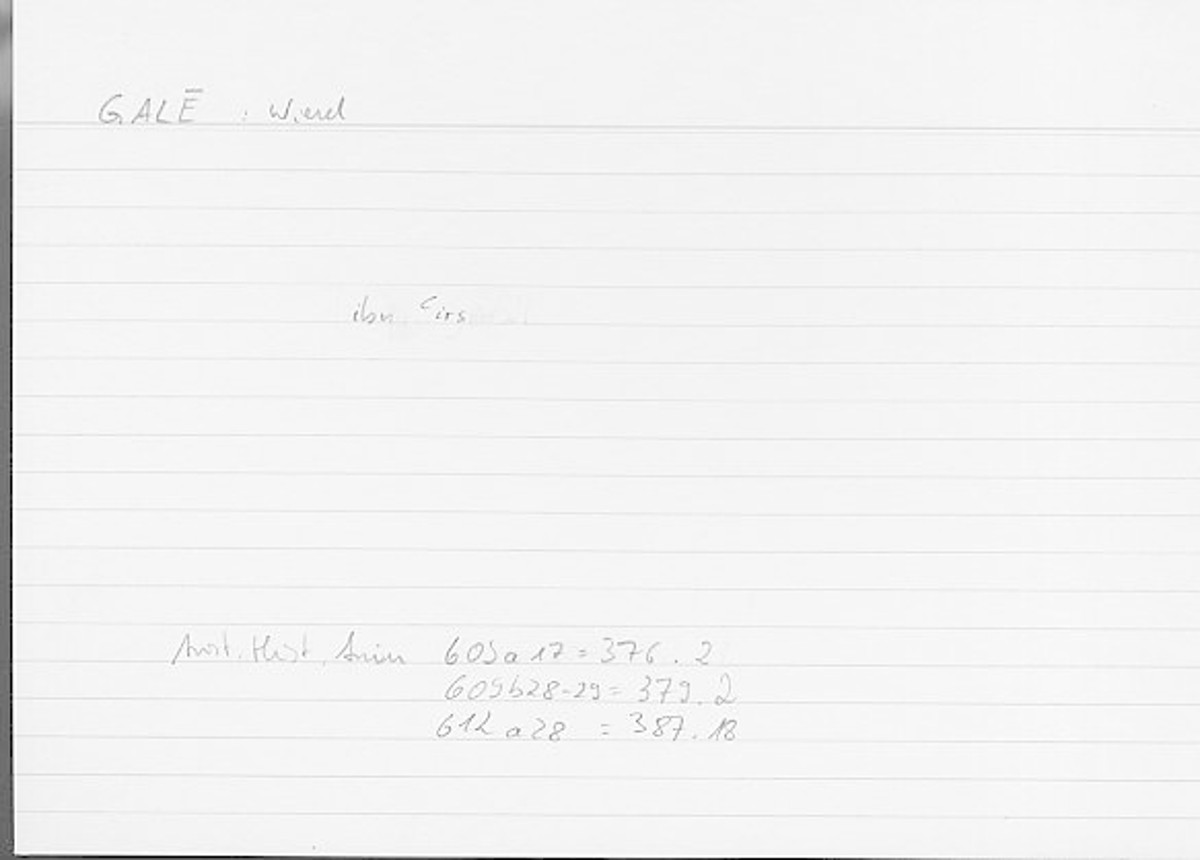 GALĒ : Wiesel
ibn ʿirs
Arist. Hist. Anim 609a17 = 376.2
609b28-29 = 379.2
612a28 = 387.18